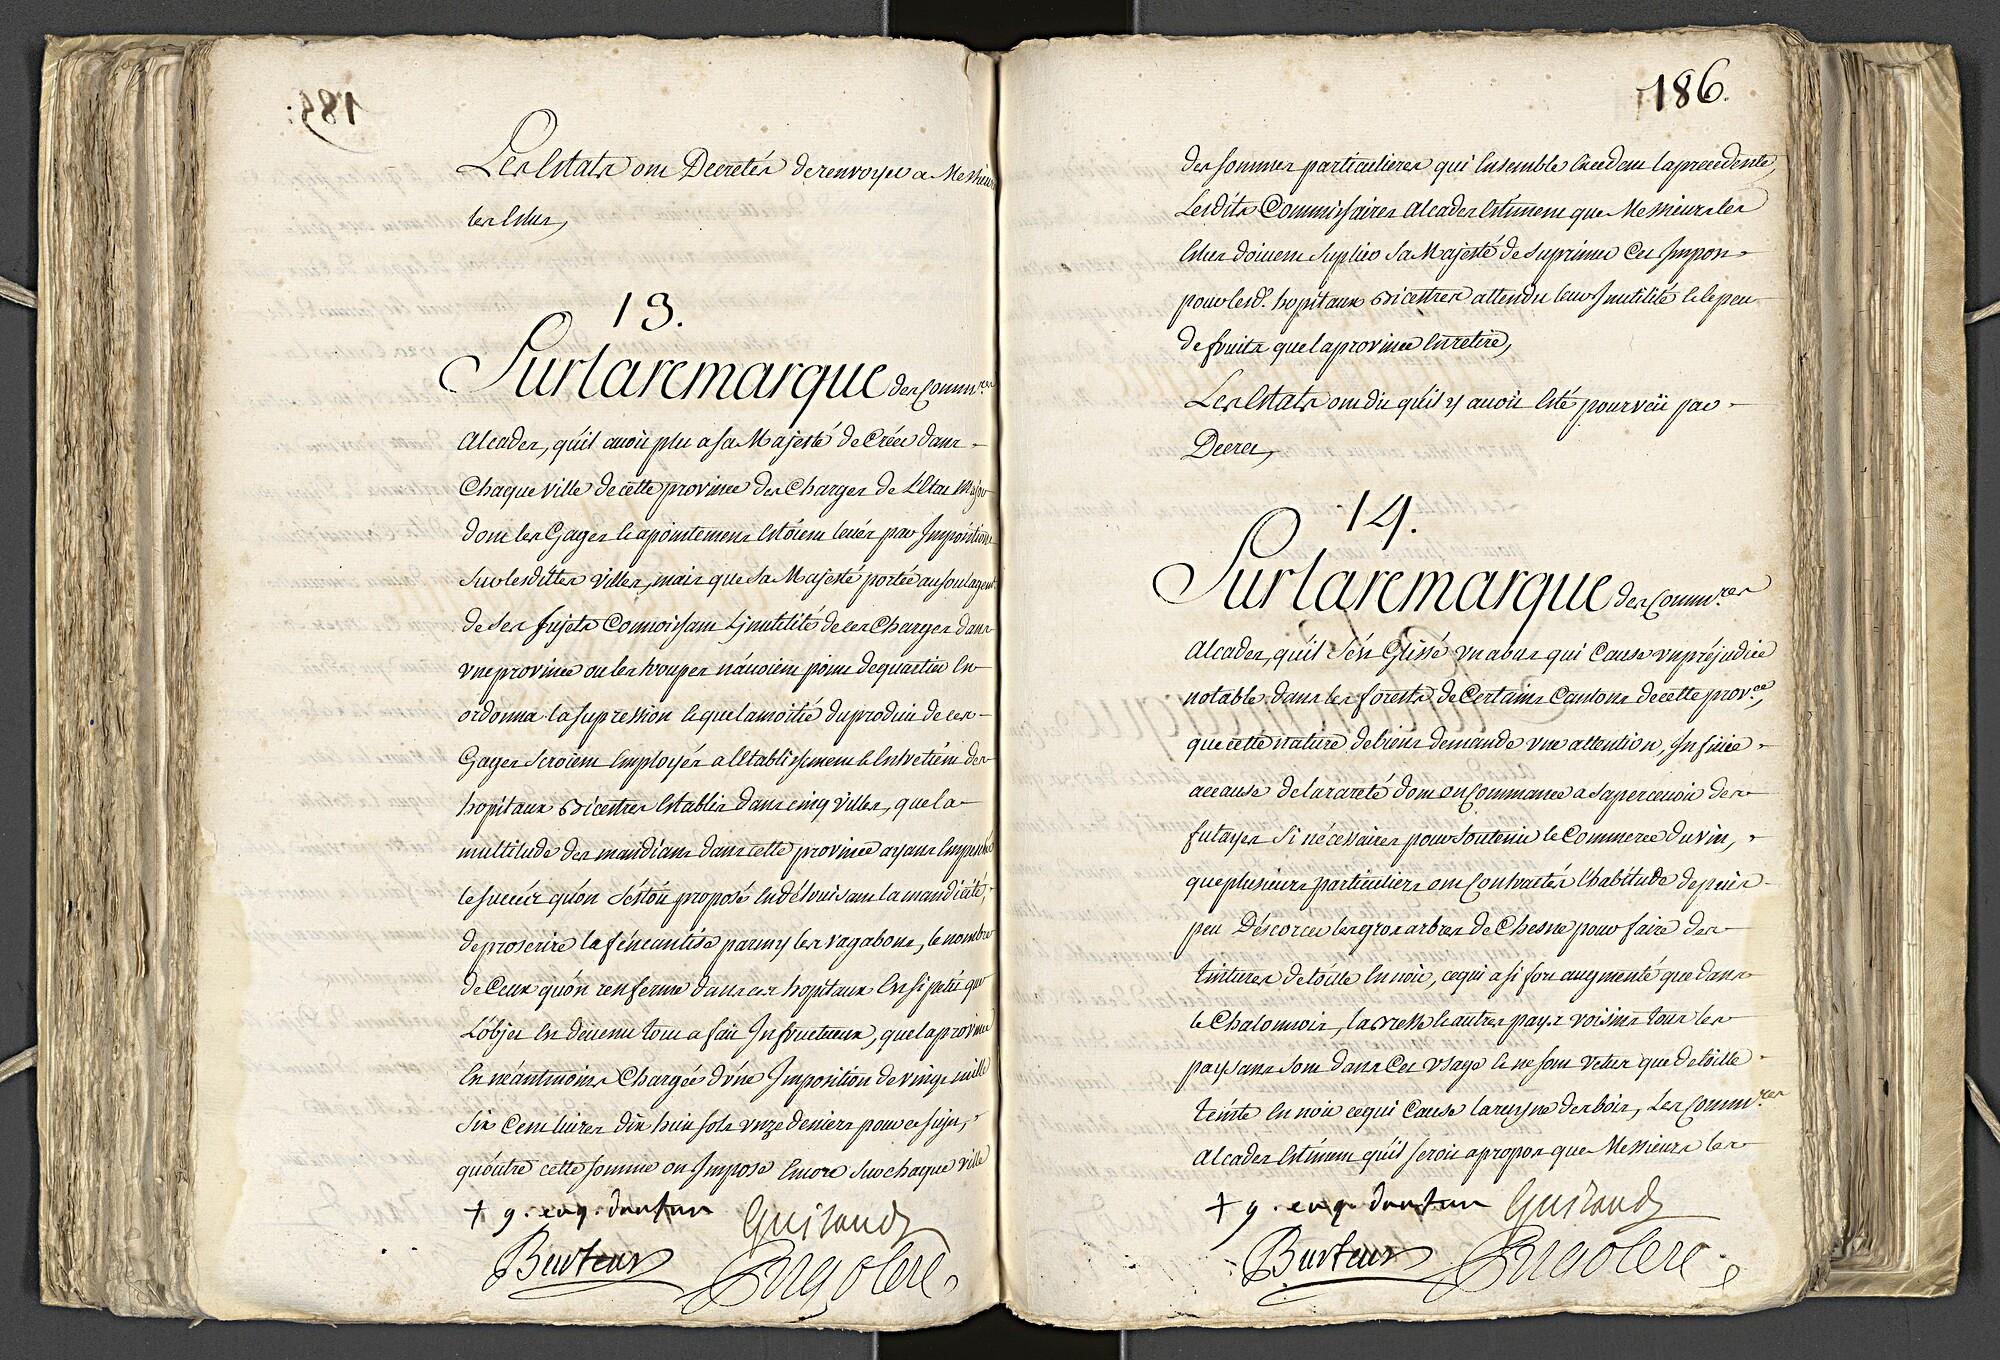 Les Estats ont Decretés de renvoyer a Messieurs
les Elus,
13.
Sur la remarque des Comm.res
Alcades, qu'il avoit plu a sa Majesté de Créer dans
Chaque ville de cette province des Charges de L'Etat Major
dont les Gages et apointemens Estoient levés par Imposition
sur lesdittes villes, mais que sa Majesté portée au soulagem.t
de ses sujets Connoissant L'inutilité de ces Charges dans
une province ou les troupes n'avoient point de quartier En
ordonna la supression et que la moitié du produit de ces
Gages seroient Employés a l'Etablissement et Entretient des
hopitaux Bicestres Establis dans cinq villes, que la
multitude des mandians dans cette province ayant Empesché
le succés qu'on s'étoit proposé En détruisant la mandicité,
de proscrire la féneantise parmy les vagabons, le nombre
de Ceux qu'on renferme dans ces hopitaux Est si petit que
L'objet Est devenu tout a fait Infructueux, que la province
Est néantmoins Chargée d'une Imposition de vingt mille
six Cent livres dix huit sols unze deniers pour ce sujet,
qu'outre cette somme on Impose Encore sur chaque ville
+ g. evq. d'autun Guiraud
Burteur
186.
des sommes particulieres qui Ensemble Excedent la precedente,
Lesdits Commissaires Alcades Estiment que Messieurs les
Elus doivent suplier Sa Majesté de suprimer Cet Impost
pour lesd. hopitaux Bicestres attendu leur Inutilité et le peu
de fruits que la province En retire,
Les Estats ont dit qu'il y avoit Esté pourveü par
Decret,
14.
Sur la remarque des Comm.res
Alcades, qu'il s'est Glissé un abus qui Cause un préjudice
notable dans les forests de Certains Cantons de cette prov.ce,
que cette nature de biens demande une attention, Infinie
a cause de la rareté dont on Commance a s'apercevoir des
futayes si nécessaires pour soutenir le Commerce du vin,
que plusieurs particuliers ont Contractés L'habitude depuis
peu D'éscorcer les gros arbres de Chesne pour faire des
tintures de toille En noir, ce qui a si fort augmenté que dans
le Chalonnois, la Bresse et autres pays voisins tous les
paysans sont dans Cet usage et ne sont vetus que de toille
teinte En noir ce qui Cause la ruyne des bois, Les Comm.res
Alcades Estiment qu'il seroit a propos que Messieurs les
+ g. evq. d'autun Guiraud
Burteur